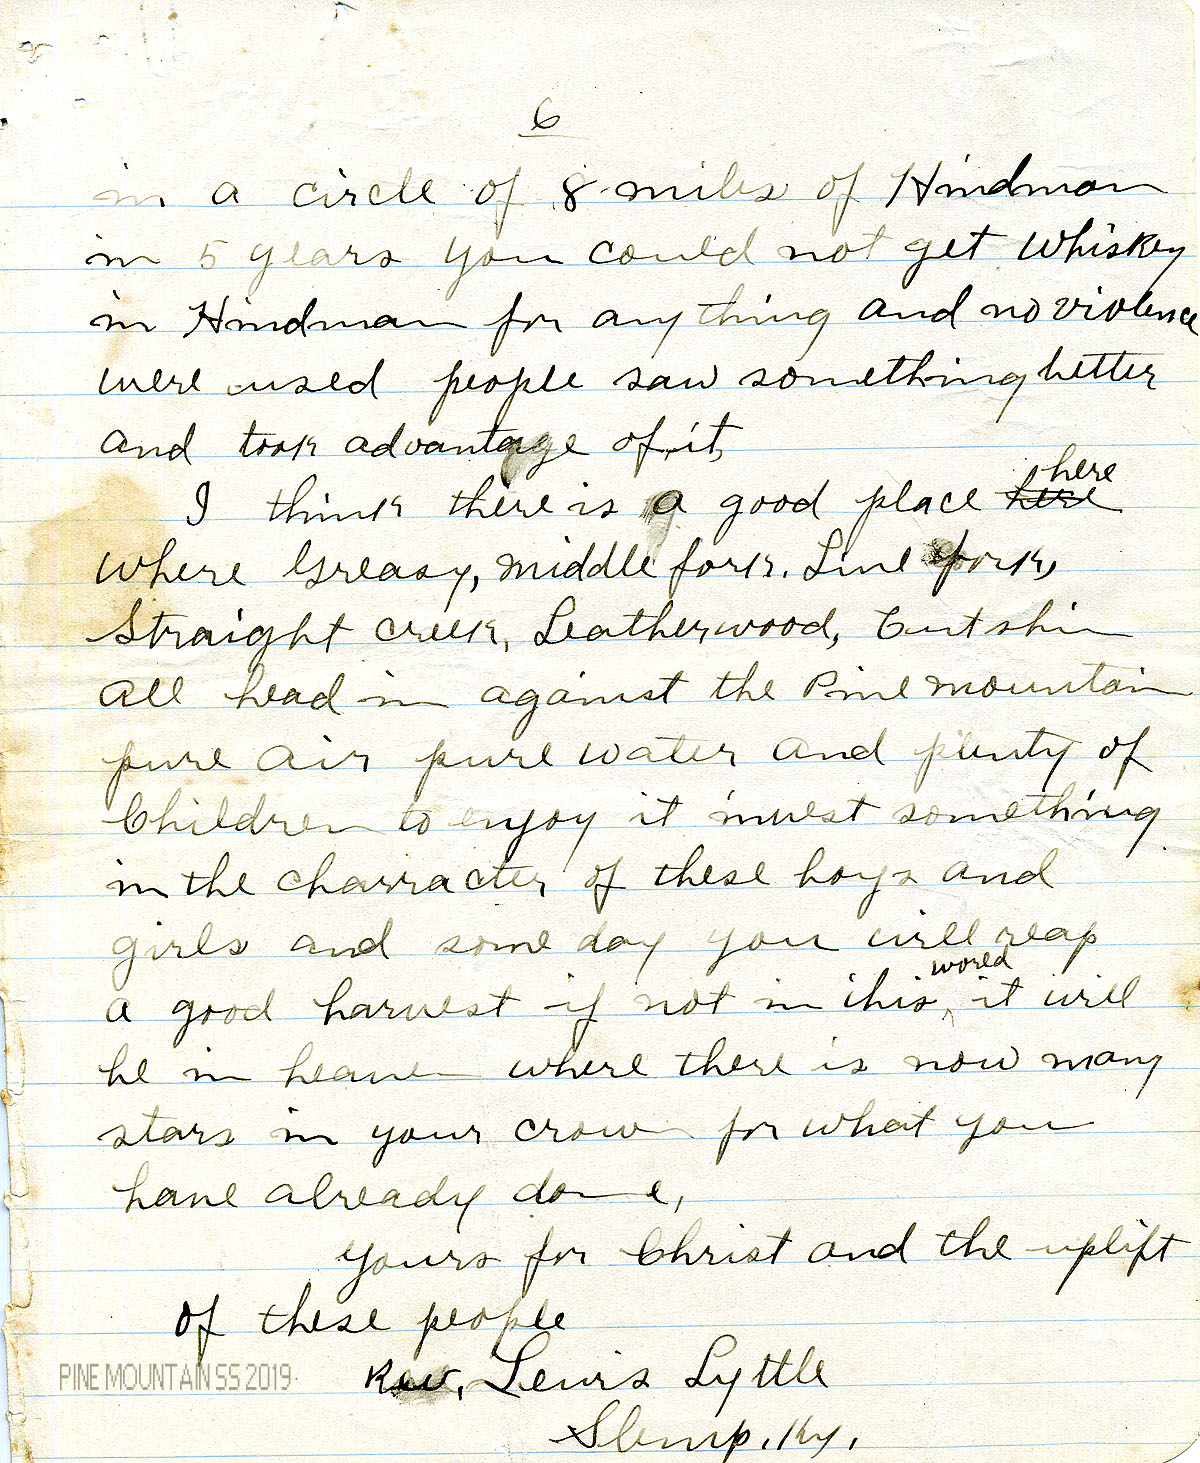 6
in a circle of 8 miles of Hindman
in 5 years you could not get whiskey
in Hindman for any thing and no violence
were used people saw something better
and took advantage of it,
I think there is a good place here here
where Greasy, middle fork. Line fork,
Straight creek, Leatherwood, Cutshin
all head in against the Pine mountain
pure air pure water and plenty of
Children to enjoy it invest something
in the charracter of these boys and
girls and some day you will reap
a good harvest if not in this world, it will
be in heaven where there is now many
stars in your crown for what you
have already done,
yours for Christ and the uplift
of these people
Rev, Lewis Lyttle
Slemp, Ky,
PINE MOUNTAIN SS 2019